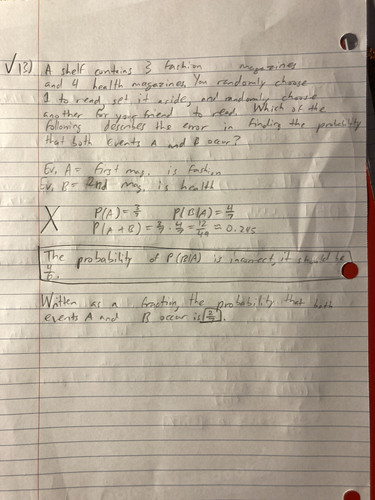 √ 13) A shelf contains 3 fashion magazines
and 4 health magazines. You randomly choose
1 to read, set it aside, and randomly choose
another for your friend to read. Which of the
following describes the error in finding the probability
that both events A and B occur?
Ev. A = first mag. is fashion
Ev. B = 2nd mag. is health
X P(A) = 3/7 P(B|A) = 4/7
P(A + B) = 3/7 · 4/7 = 12/49 ≈ 0.245
The probability of P(B|A) is incorrect, it should be
4/6.
Written as a fraction, the probability that both
events A and B occur is 2/7.